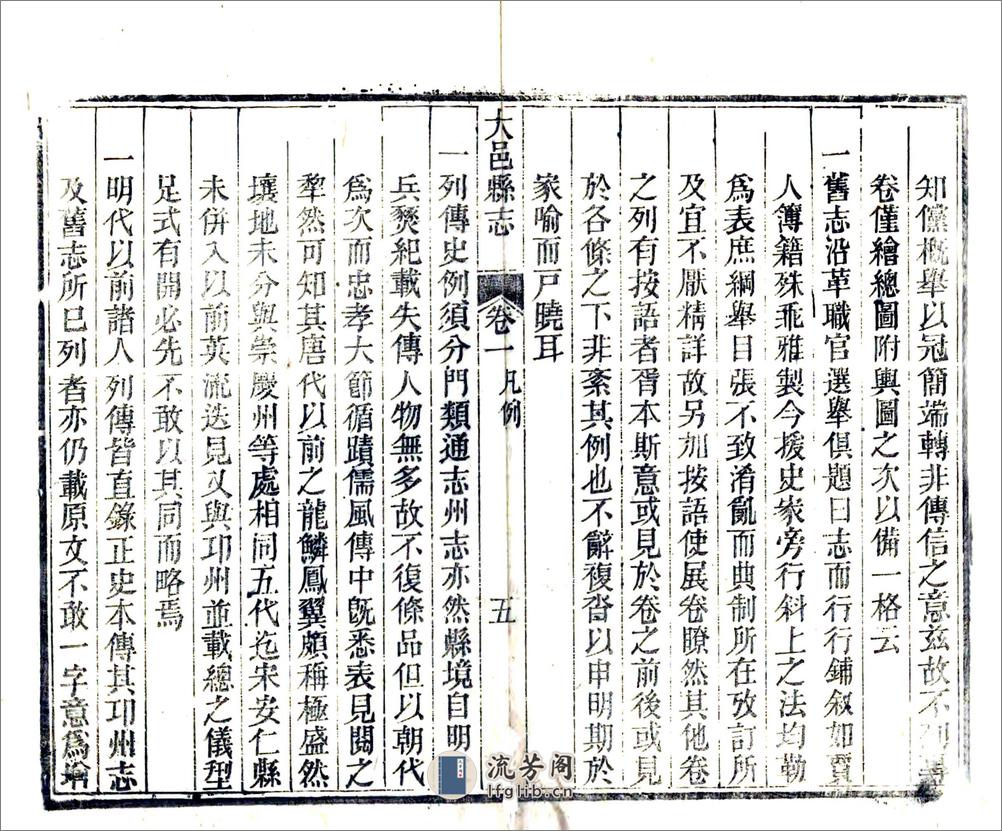 知儻概舉以冠簡端轉非傳信之意茲故不列
卷僅繪總圖附輿圖之次以備一格云
一舊志沿革職官選舉俱題曰志而行行鋪叙如買
人簿籍殊乖雅製今援史家旁行斜上之法均勒
爲表庶綱舉目張不致淆亂而典制所在攷訂所
及宜不厭精詳故另加按語使展卷瞭然其他卷
之列有按語者胥本斯意或見於卷之前後或見
於各條之下非紊其例也不辭複沓以申明期於
家喻而戸曉耳
大邑縣志 卷一 凡例 五
一列傳史例須分門類通志州志亦然縣境自明
兵燹紀載失傳人物無多故不復條品但以朝代
爲次而忠孝大節循蹟儒風傳中旣悉表見閱之
犂然可知其唐代以前之龍鱗鳳翼頗稱極盛然
壤地未分與崇慶州等處相同五代迄宋安仁縣
未併入以前英流迭見又與邛州並載總之儀型
足式有開必先不敢以其同而略焉
一明代以前諸人列傳皆直錄正史本傳其邛州志
及舊志所已列者亦仍載原文不敢一字意爲
流芳阁
lfglib.cn